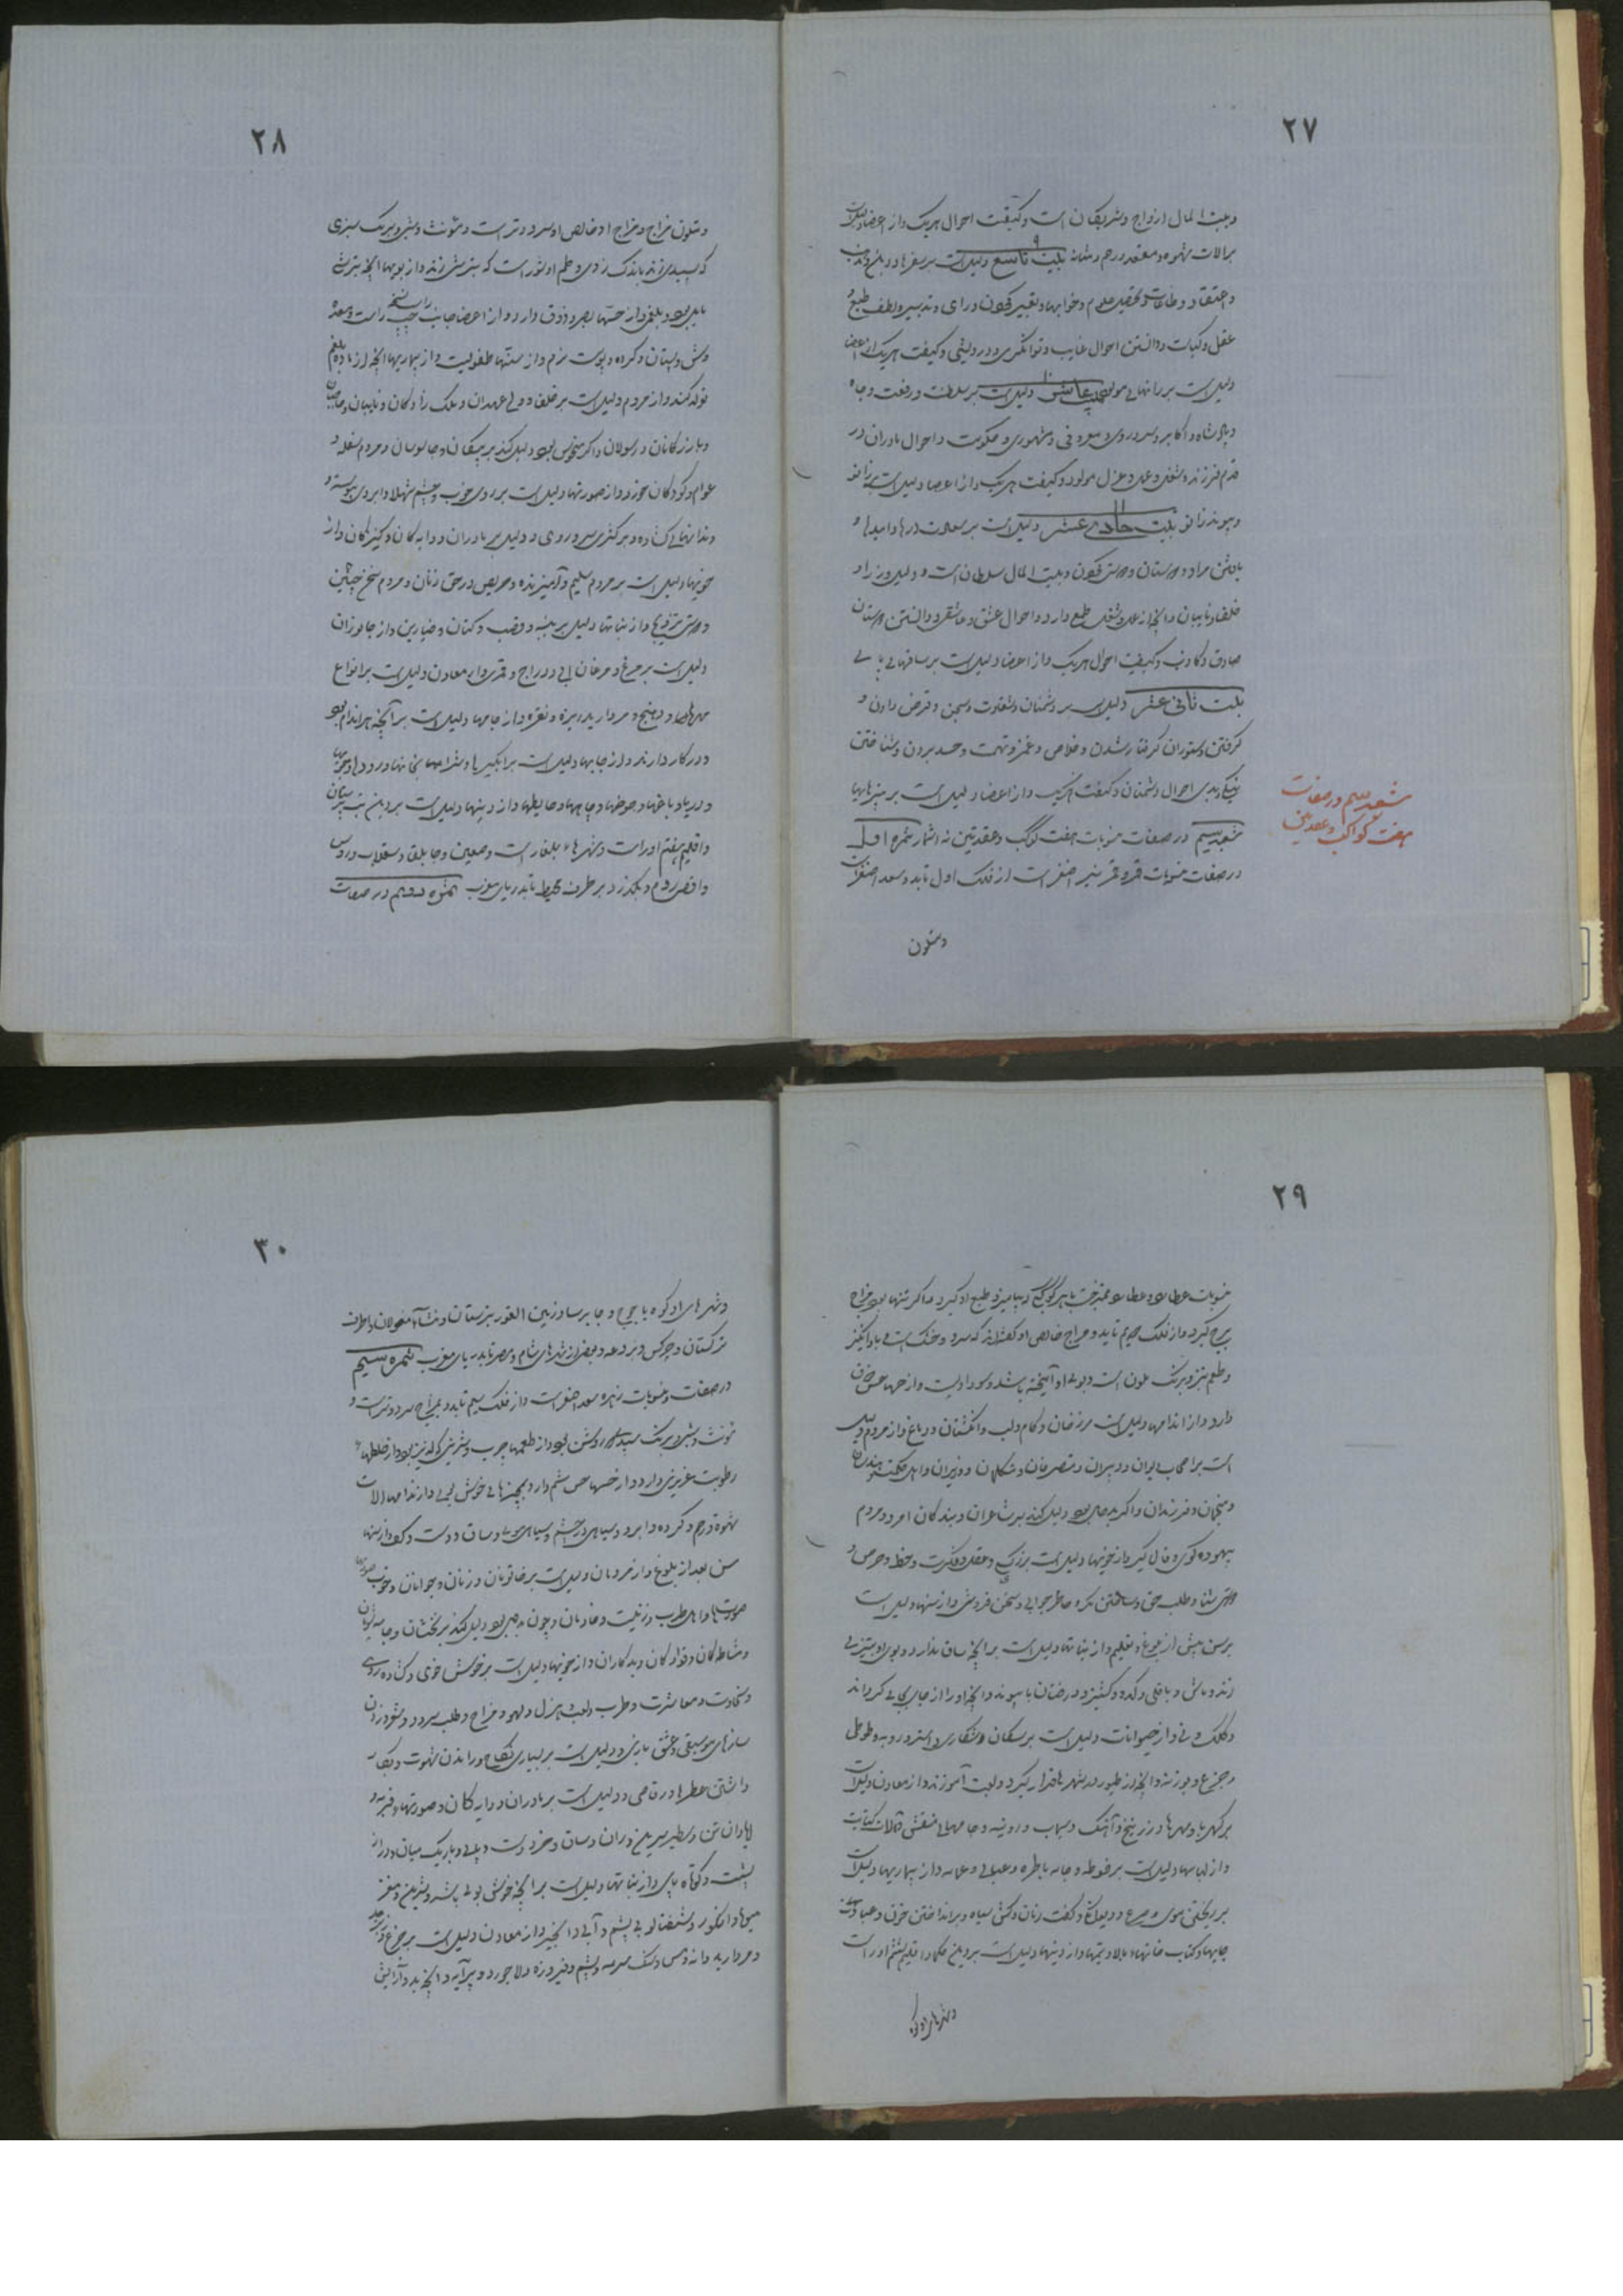 ۲۷
وبیت المال ازواج وشریکان است وکیفیت احوال هریک واز اعضا دلیلست
برالات شهوه ومقعد ورحم ومثانه بیت تاسع دلیلست برسفرها ودین ومذهب
واعتقاد وطاعات وتحصیل علوم وخوابها وتعبیر کردن ورای وتدبیر ولطف طبع و
عقل وکیاست ودانستن احوال غایب وتوانگری ودرویشی وکیفیت هریک از اعضا
دلیلست بر رانهای مولود بیت عاشر دلیلست برسلطنت ورفعت وجاه
وپادشاه واکابر وسروری ومعروفی ومشهوری وحکومت واحوال مادران و
قدم فرزند وشغل وعمل وعزل مولود وکیفیت هریک واز اعضا دلیلست برزانو
وپیوند زانو بیت حادی عشر دلیلست برسعادت وامیدها و
یافتن مراد ودوستان ودوستی کردن وبیت المال سلطان است ودلیل وزرا و
خلفا ونایبان وآنچه از عمل وشغل طمع دارد واحوال عشق وعاشقی ودانستن دوستان
صادق وکاذب وکیفیت احوال هریک واز اعضا دلیلست برساقهای پای
بیت ثانی عشر دلیلست بر دشمنان وشقاوت وسجن وقرض دادن و
گرفتن وستوران گرفتار شدن وخلاص وغمز وتهمت وحسد بردن وشناختن
نیکی وبدی احوال دشمنان وکیفیت هریک واز اعضا دلیلست بر
شعبه سیم در صفات منسوبات هفت کوکب وعقدتین نه اثمار ثمره اول
در صفات منسوبات قمر وقمر نیر اصغر است از فلک اول تابد وسعد اصغرست
ومتلون
شعبه سیم در صفات
هفت کواکب وعقدتین
۲۸
ومتلون مزاج ومزاج او خالص او سرد وتر است ومونث وشبی وبرنگ سبزی
که بسپیدی زند باندک زردی وطعم او شور است که بترشی زند واز بویها آنچه بترشی
مایل بود وبلغمی واز حسها بصر وذوق دارد واز اعضا جانب چپ راست نسخه ومعده
وشش وپستان وگرده وپوست نرم واز سنها طفولیت واز بیماریها آنچه از ماده بلغم
تولد کند واز مردم دلیلست برخلفا وولی عهدان وملک زادگان ونایبان وحاجبان
وبازرگانان ورسولان واگر منحوس بود دلیل کند بر پیکان وجاسوسان ومردم سفله و
عوام وکودکان خرد واز صورتها دلیلست بر روی خوب وچشم شهلا وابروی پیوسته و
دندانهای گشاده وبر کثری سر وروی ودلیل بر مادران ودایه گان وکنیزکان واز
خویها دلیلست بر مردم سلیم وآمیزنده وحریص در حق زنان ومردم سخن چین
ودوستی تزویج واز نباتها دلیل بر پنبه وقصب وکتان وخیارین واز جانوران
دلیلست بر مرغ ومرغان آبی ودراج وقمری واز معادن دلیلست بر انواع
مهره ها ودهنج ومروارید ریزه ونقره واز جامها دلیلست بر آنچه هر اندام بود
ودر کار دارند واز جایها دلیلست بر آبگیرها وشرابخانها ورودها وجویها
ودریا وباغها وحوضها وچاهها وحایطها واز دینها دلیلست بر دین بت پرستان
واقلیم هفتم او راست وشهرهای بلغار است وصعین وجابلقا وسقلاب وروس
واقصی روم وبگذرد بر طرف محیط تا بدریای مغرب ثمره دویم در صفات
۲۹
منسوبات عطارد وعطارد ممتزجست با هر کوکبی که بیامیزد طبع او گیرد واگر تنها بود مزاج
برج گیرد واز فلک دویم تابد ومزاج خالص او گفته اند که سرد وخشک است وبادانگیز
وطعم تیز وبرنگ ملون است وبوی او آمیخته باشد وسوداویست واز حسها حس ذوق
دارد واز اندامها دلیلست بر زبان وکام ولب وانگشتان ودماغ واز مردم دلیل
است بر اصحاب دیوان ودبیران ومتصرفان ومتکلمان ووزیران واهل حکمت ومهندسان
ومنجمان وفرزندان واگر بد حال بود دلیل کند بر شاعران وبندگان امرد ومردم
بیهوده گوی وفال گیر واز خویها دلیلست بر زیرکی وعقل وفکرت وحفظ وحرص و
دوستی ثنا وطلب حق وساختن مکر وحاضر جوابی وسخن فروش واز سنها دلیلست
بر سن پیش از بلوغ وتعلیم واز نباتها دلیلست بر آنچه ساق ندارد وبوی او بتیزی
زند وماش وباقلی وکدو وگشنیز ودرختان با پیوند وآنچه او را از جای بجای گرداند
وکلک ونی واز حیوانات دلیلست بر سگان شکاری واستر وروبه وطوطی
وجزع وبوزنه وآنچه از طیور در شهرها قرار گیرد ولعبت آموزند واز معادن دلیلست
بر کهربا ومهرها وزرنیخ وآهک وسیماب وروئینه وجامهای منقش وآلات کتابت
واز لباسها دلیلست بر فوطه وجامه باطره وعتابی وعمامه واز بیماریها دلیلست
بر ریختن موی وصرع ودیوانگی وکفت زنان وکسی سیاه وبرانداختن خون وعبادت
جایها وکتاب خانها وبالا وتیمها واز دینها دلیلست بر دین حکما واقلیم ششم او راست
وشهرهای او کوه
۳۰
وشهرهای او کوه یاجوج وجابرسا وزمین الغور بترستان ومنشاء مغولان واطراف
ترکستان وچرکس وبردعه وبعضی از شهرهای شام ومصر تا بدریای مغرب ثمره سیم
در صفات ومنسوبات زهره سعد اصغر است واز فلک سیم تابد وبمزاج سرد وترست و
مونث وشبی وبرنگ سپید روشن بود واز طعمها چرب وشیرینی که لذیذ بود واز خلطها
رطوبت غریزی دارد واز حسها حس شم دارد وبچیزهای خوش بوی واز اندامها الات
شهوة ورحم وگرده وابرو وسیاهی چشم وسیاهی موی وساق ودست وکف واز سنها
سن بعد از بلوغ واز مردمان دلیلست بر خاتونان وزنان وجوانان وخوب
صورتها واهل طرب وزینت وخادمان وچون بدحال بود دلیل کند بر مخنثان وجامه
ومشاطه گان وقوادگان وبدکاران واز خویها دلیلست بر خوش خوی وگشاده روی
وسخاوت ومعاشرت وطرب ولعب وهزل ولهو ومزاح وطلب سرود وشعر زدن
سازهای موسیقی وعشق بازی ودلیلست بر بسیاری نکاح وراندن شهوت وبکار
داشتن عطرها ورقاصی ودلیلست بر مادران ودایه گان وصورتها وفربه و
وران وساق وخرد دست وپای وباریک میان ودراز
پشت وکوتاه پای واز نباتها دلیلست بر آنچه خوش بوی باشد وشیرین مغز
میوها وانگور وشفتالوی بی پشم وآبی وانجیر واز معادن دلیلست بر جزع وزبرجد
ومروارید دانه ومس وسنگ سرمه ویشم وفیروزه ولاجورد وپیرایه وآنچه بدو آرایش